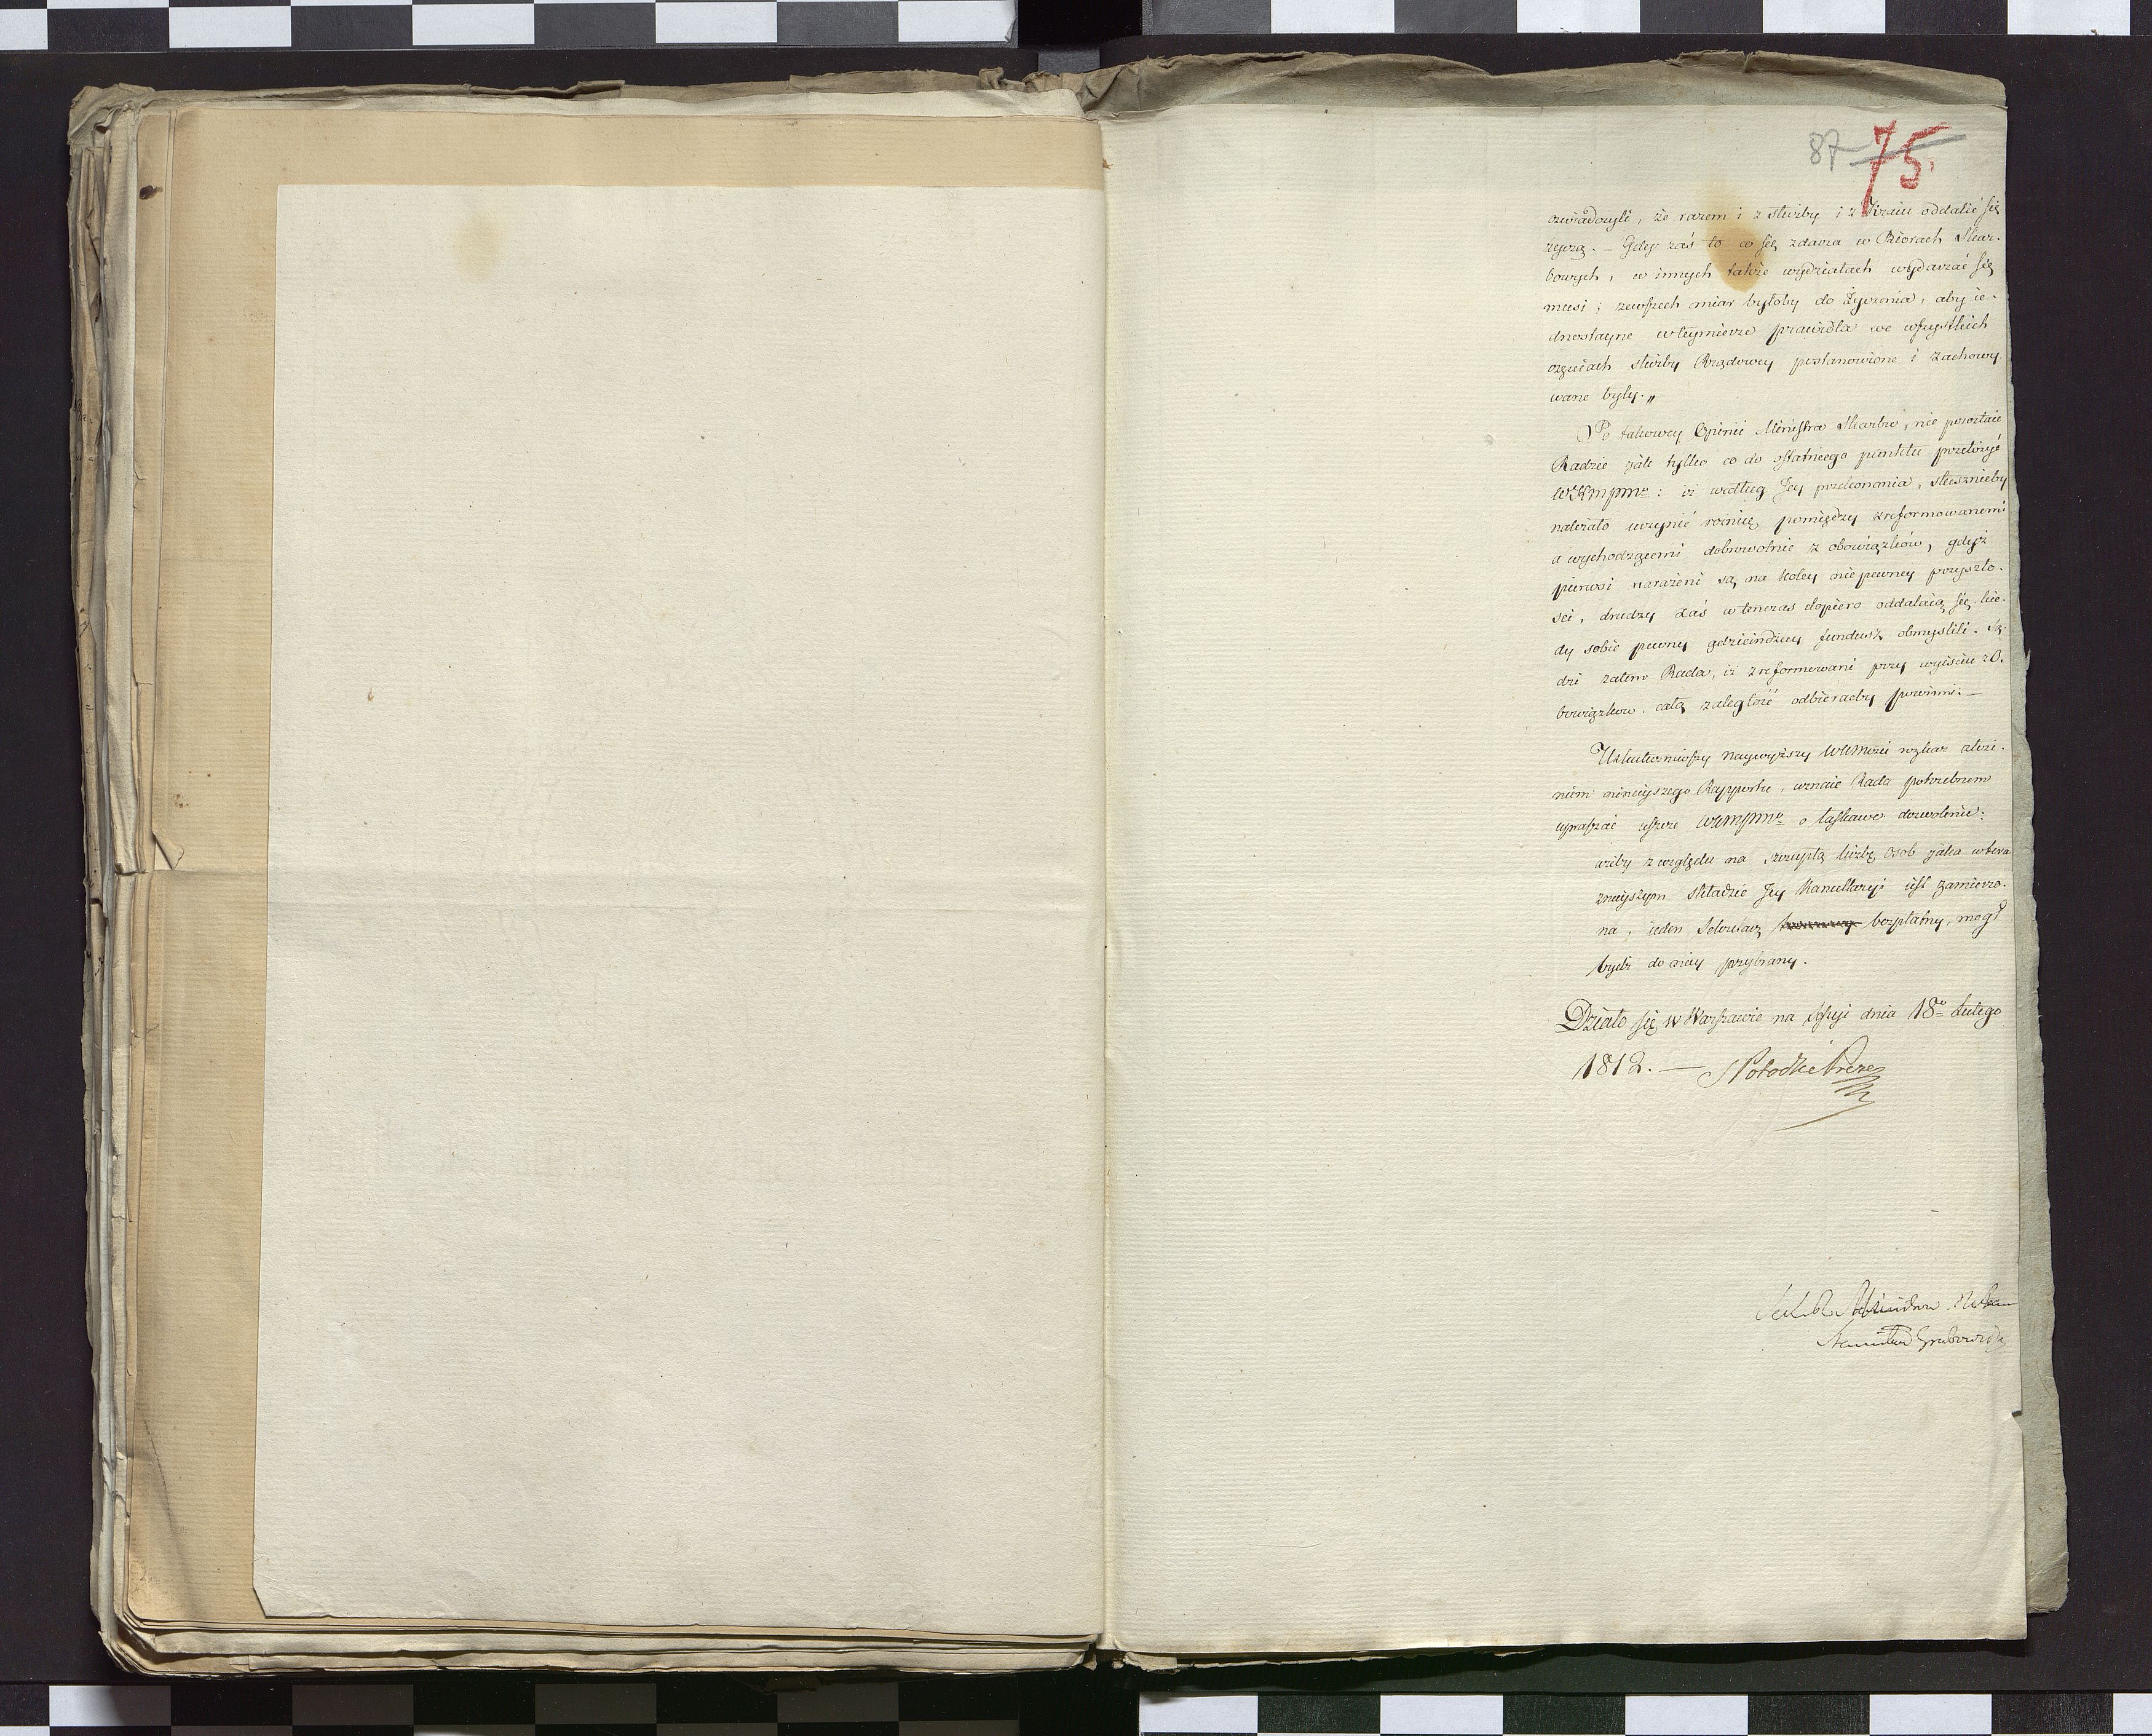 87 75.
oświadczyli, że razem i z służby i z Kraiu oddalić się
życzą. – Gdy zaś to co się zdarza w Biórach Skar-
bowych, w innych także wydziałach wydarzać się
musi; zewszech miar byłoby do życzenia, aby ie-
dnostayne w tey mierze prawidła we wszystkich
częściach służby Rządowey postanowione i zachowy
wane były.„
Po takowey Opinii Ministra Skarbu, nie pozostaie
Radzie jak tylko co do ostatniego punktu przełożyć
WKMPM: iż według Jey przekonania, słusznieby
należało uczynić róźnicę pomiędzy zreformowanemi
a wychodzącemi dobrowolnie z obowiązków, gdyż
pierwsi narażeni są na koley niepewney przyszło-
sci, drudzy zaś wtenczas dopiero oddalaią się, kie-
dy sobie pewny gdzieindziey fundusz obmyślili. Są-
dzi zatem Rada, iż zreformowani przy wyiściu z O-
bowiązków, całą zaległość odbieraćby powinni. –
Uskuteczniwszy naywyższy WKMości rozkaz złoże-
niem ninieyszego Rapportu, uznaie Rada potrzebnem
upraszać ieszcze WKMPM o łaskawe dozwolenie:
iżby z względu na szczupłą liczbę osob jaka w tera
znieyszym składzie Jey Kancellaryi iest zamierzo-
na, ieden Sekretarz bezpłatny, mogł
bydź do niey przybrany.
Działo się w Warszawie na Sessyi dnia 18go Lutego
1812. – S Potocki Prezes
Stanisław Grabowski